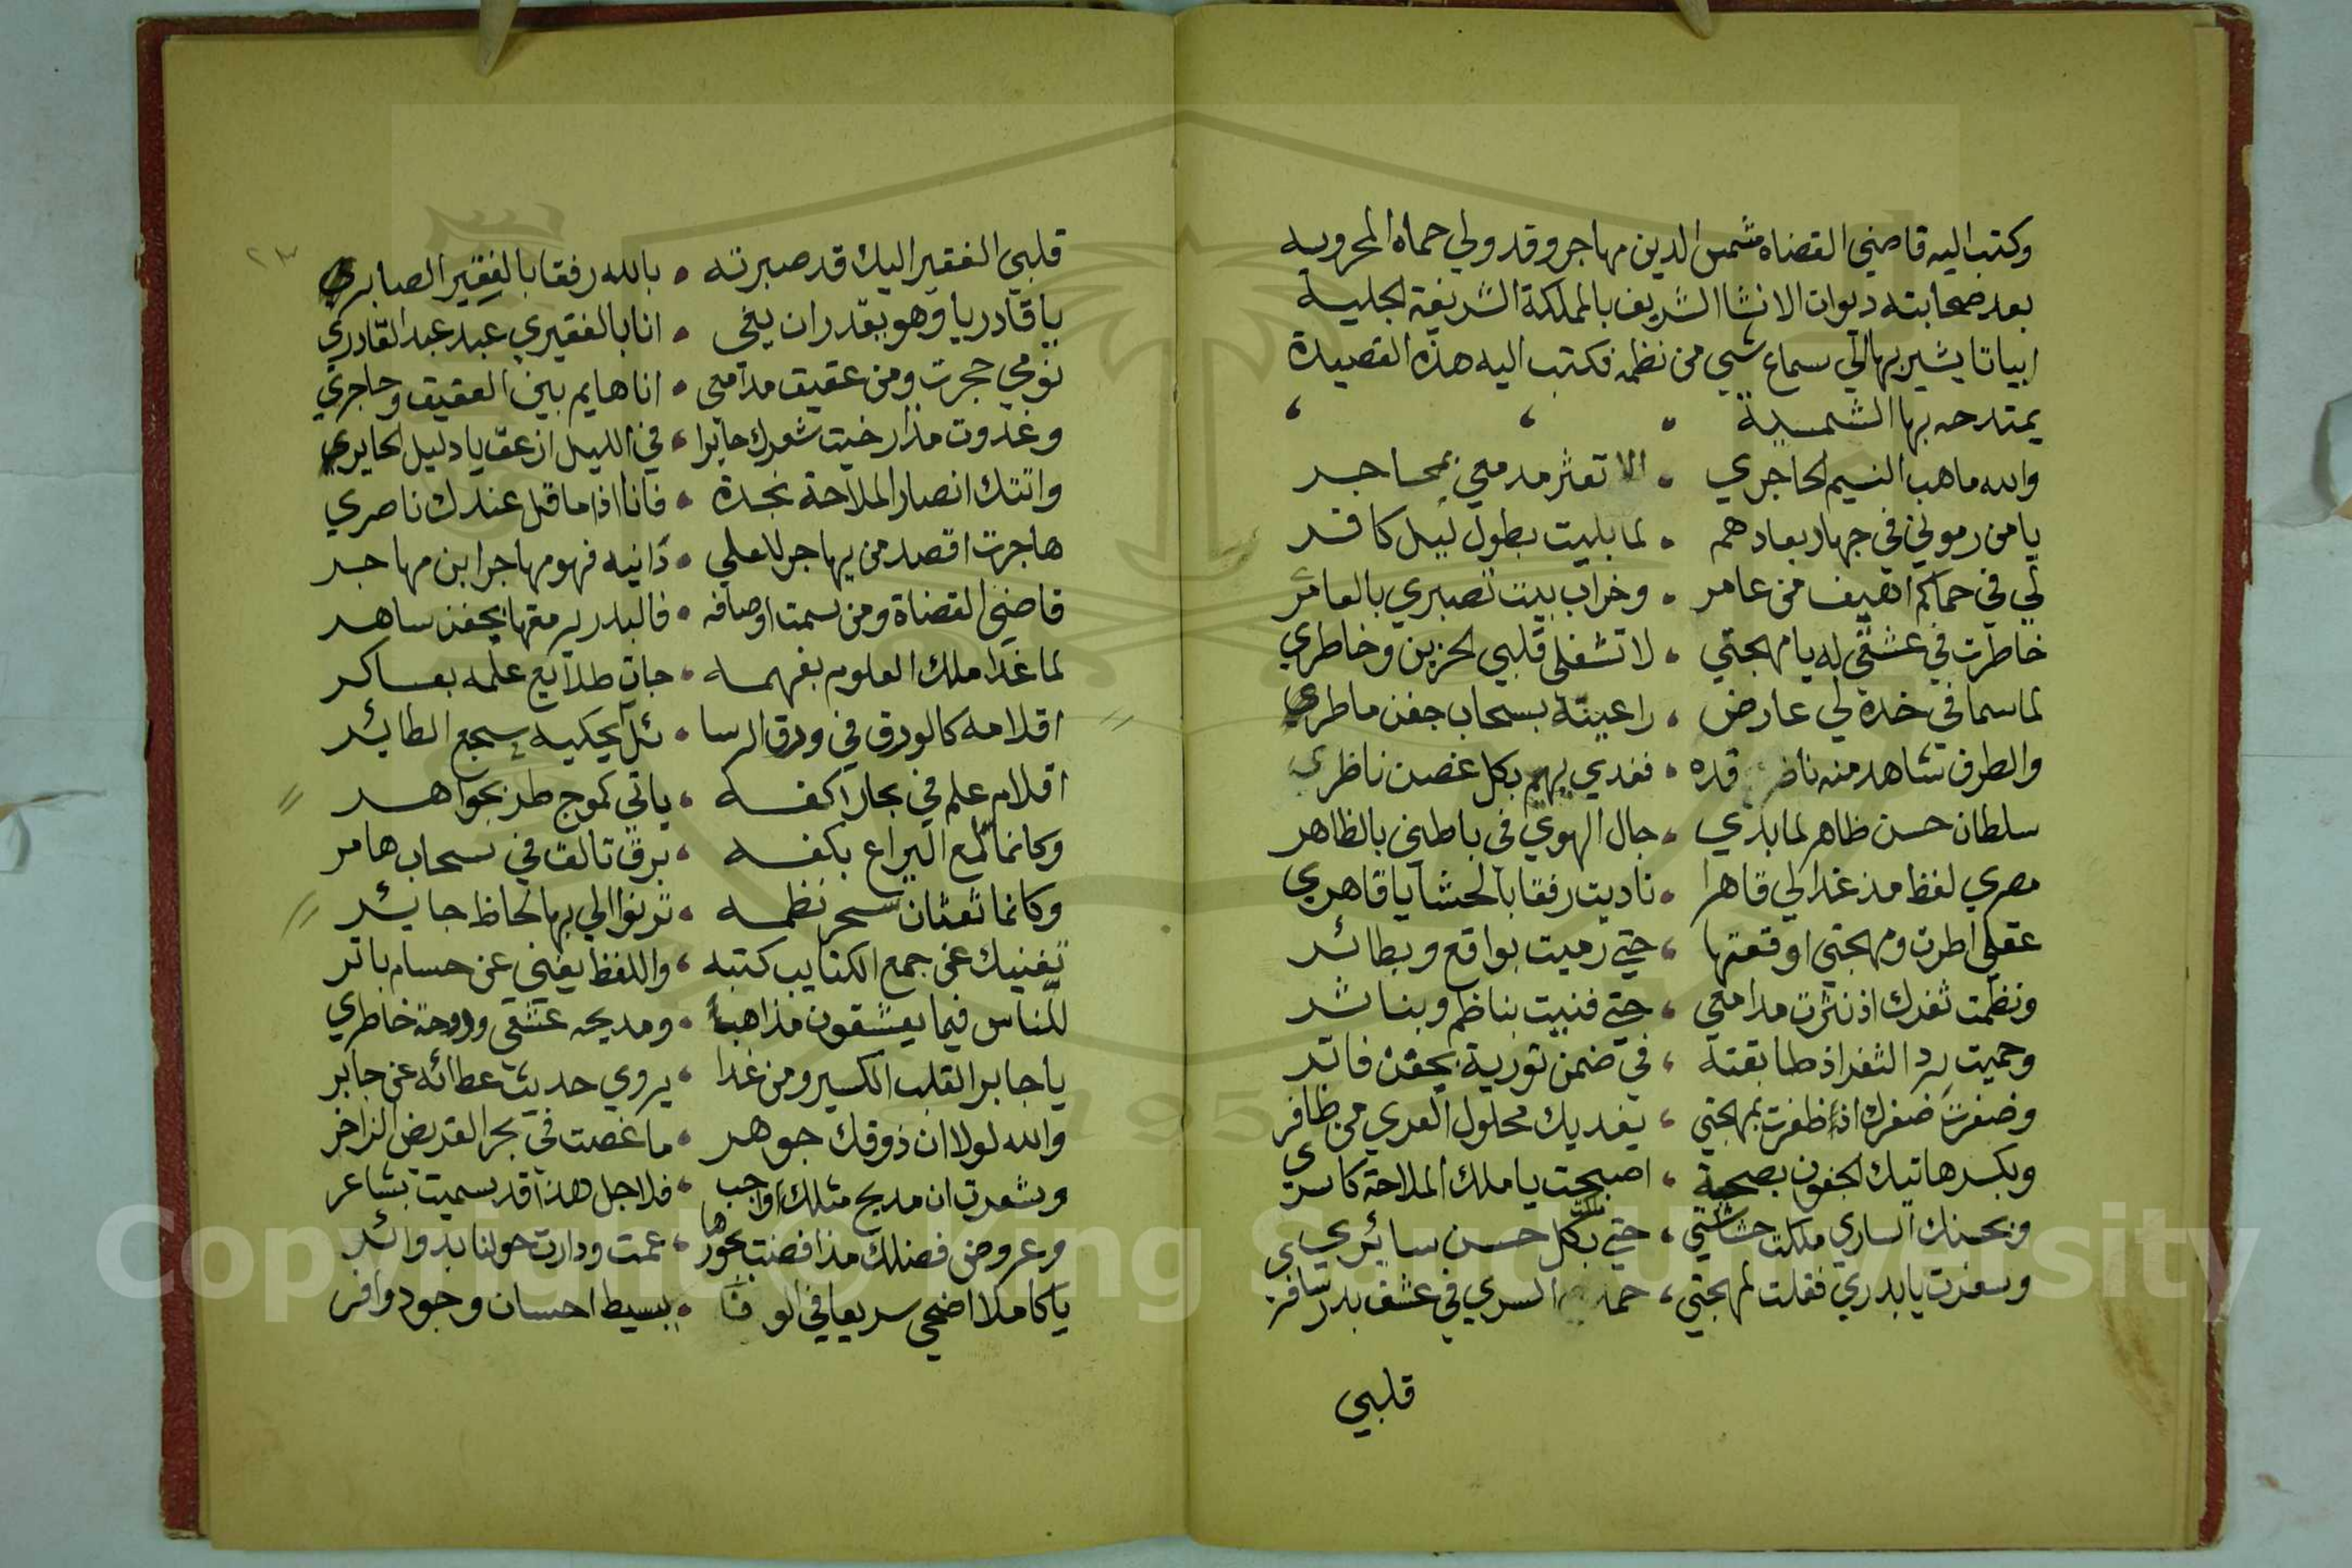 وكتب اليه قاضي القضاة شمس الدين مهاجر وقد ولي حماه المحروسه
بعد صحابته ديوان الانشا الشريف بالمملكة الشريفة الحلبية
ابياتا يشير بها الي سماع شي من نظمه فكتب اليه هذه القصيدة
يمتدحه بها الشمسية
والله ما هب النسيم الحاجري الا تعثر مدمعي بمحاجر
يا من رموني في جهار بعادهم لما بليت بطول ليل كافر
لي في حماكم اهيف من عامر وخراب بيت تصبري بالعامر
خاطرت في عشقي له يا مهجتي لا تشغلي قلبي الحزين وخاطري
لما سما في خده لي عارض راعيته بسحاب جفن ماطري
والطرف شاهد منه قده فغدي يهيم بكل غصن ناظري
سلطان حسن ظاهر لما بدي جال الهوي في باطني بالظاهر
مصري لفظ مذ غدا لي قاهرا ناديت رفقا بالحشا يا قاهري
عقلي اطرت ومهجتي اوقعتها حتي رميت بواقع وبطائر
ونظمت ثغرك اذ نثرت مدامعي حتي فنيت بناظم وبناثر
وحميت برد الثغر اذ طابقته في ضمن تورية بجفن فاتر
وضفرت ضفرك اذ ظفرت بمهجتي يفديك محلول العري من ظافري
وبكسر هاتيك الجفون بصحبة اصبحت يا ملك الملاحة كاسري
وبحسنك الساري ملكت حشاشتي حتي بكل حسن سائري
وسفرت يا بدري فقلت لمهجتي السري في عشق بدر سافري
قلبي
٢٣
قلبي الفقير اليك قد صبرته بالله رفقا بالفقير الصابري
يا قادريا وهو يقدر ان يخي انا بالفقيري عبد عبد القادري
نومي حجرت ومن عقيق مدامعي انا هايم بين العقيق وحاجري
وغدوت مذ ارخيت شعرك حايرا في الليل ازعق يا دليل الحايري
واتتك انصار الملاحة نجدة فانا اذا ما قل عندك ناصري
هاجرت اقصد من يهاجر للعلي دانيه فهو مهاجر ابن مهاجر
قاضي القضاة ومن سمت اوصافه فالبدر يرمقها بجفن ساهر
لما غدا ملك العلوم بفهمه جات طلايع علمه بعساكر
اقلامه كالورق في ورق الرسا ئل يحكيه سجع الطائر
اقلام علم في بحار اكفه ياتي كموج طر بجواهر
وكانما لمع اليراع بكفه برق تالق في سحاب هامر
وكانما نفثات سحر نظمه ترنوا الي بها لحاظ جايئر
يغنيك عن جمع الكتايب كتبه واللفظ يغني عن حسام باتر
للناس فيما يعشقون مذاهب ومديحه عشقي وروحة خاطري
يا جابر القلب الكسير ومن غدا يروي حديث عطائه عن جابر
والله لولا ان ذوقك جوهر ما غصت في بحر القريض الزاخر
وشعرت ان مديح مثلك واجب فلاجل هذا قد سميت بشاعر
وعروض فضلك مذ افضت بحورها عمت ودارت حولنا بدوائر
يا كاملا اضحي سريعا في الوفا ببسيط احسان وجود وافر
Copyright © King Saud University
1957